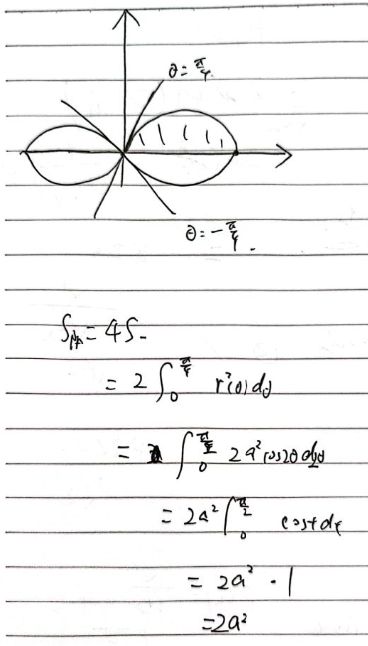 θ = π/4
θ = -π/4
= 2 ∫₀^{π/4} r²(θ) dθ
= ∫₀^{π/2} 2a² cos2θ d2θ
= 2a² ∫₀^{π/2} cost dt
= 2a² · 1
= 2a²